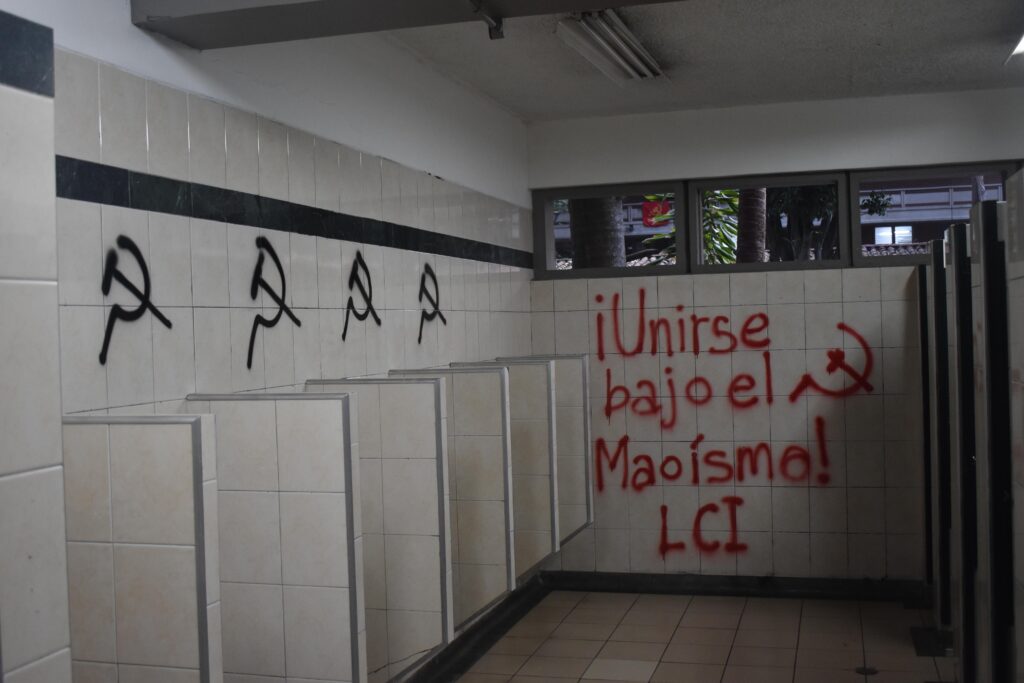 ¡Unirse
bajo el
Maoísmo!
LCI